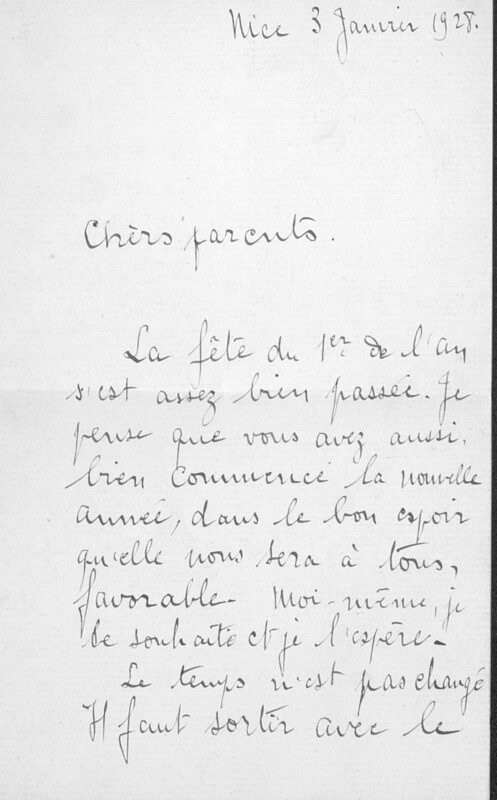 Nice 3 Janvier 1928.
Chèrs parents.
La fête du 1er de l'an
s'est assez bien passée. Je
pense que vous avez aussi,
bien commencé la nouvelle
année, dans le bon espoir
qu'elle nous sera à tous,
favorable- Moi-même, je
le souhaite et je l'espère-
Le temps n'est pas changé
Il faut sortir avec le